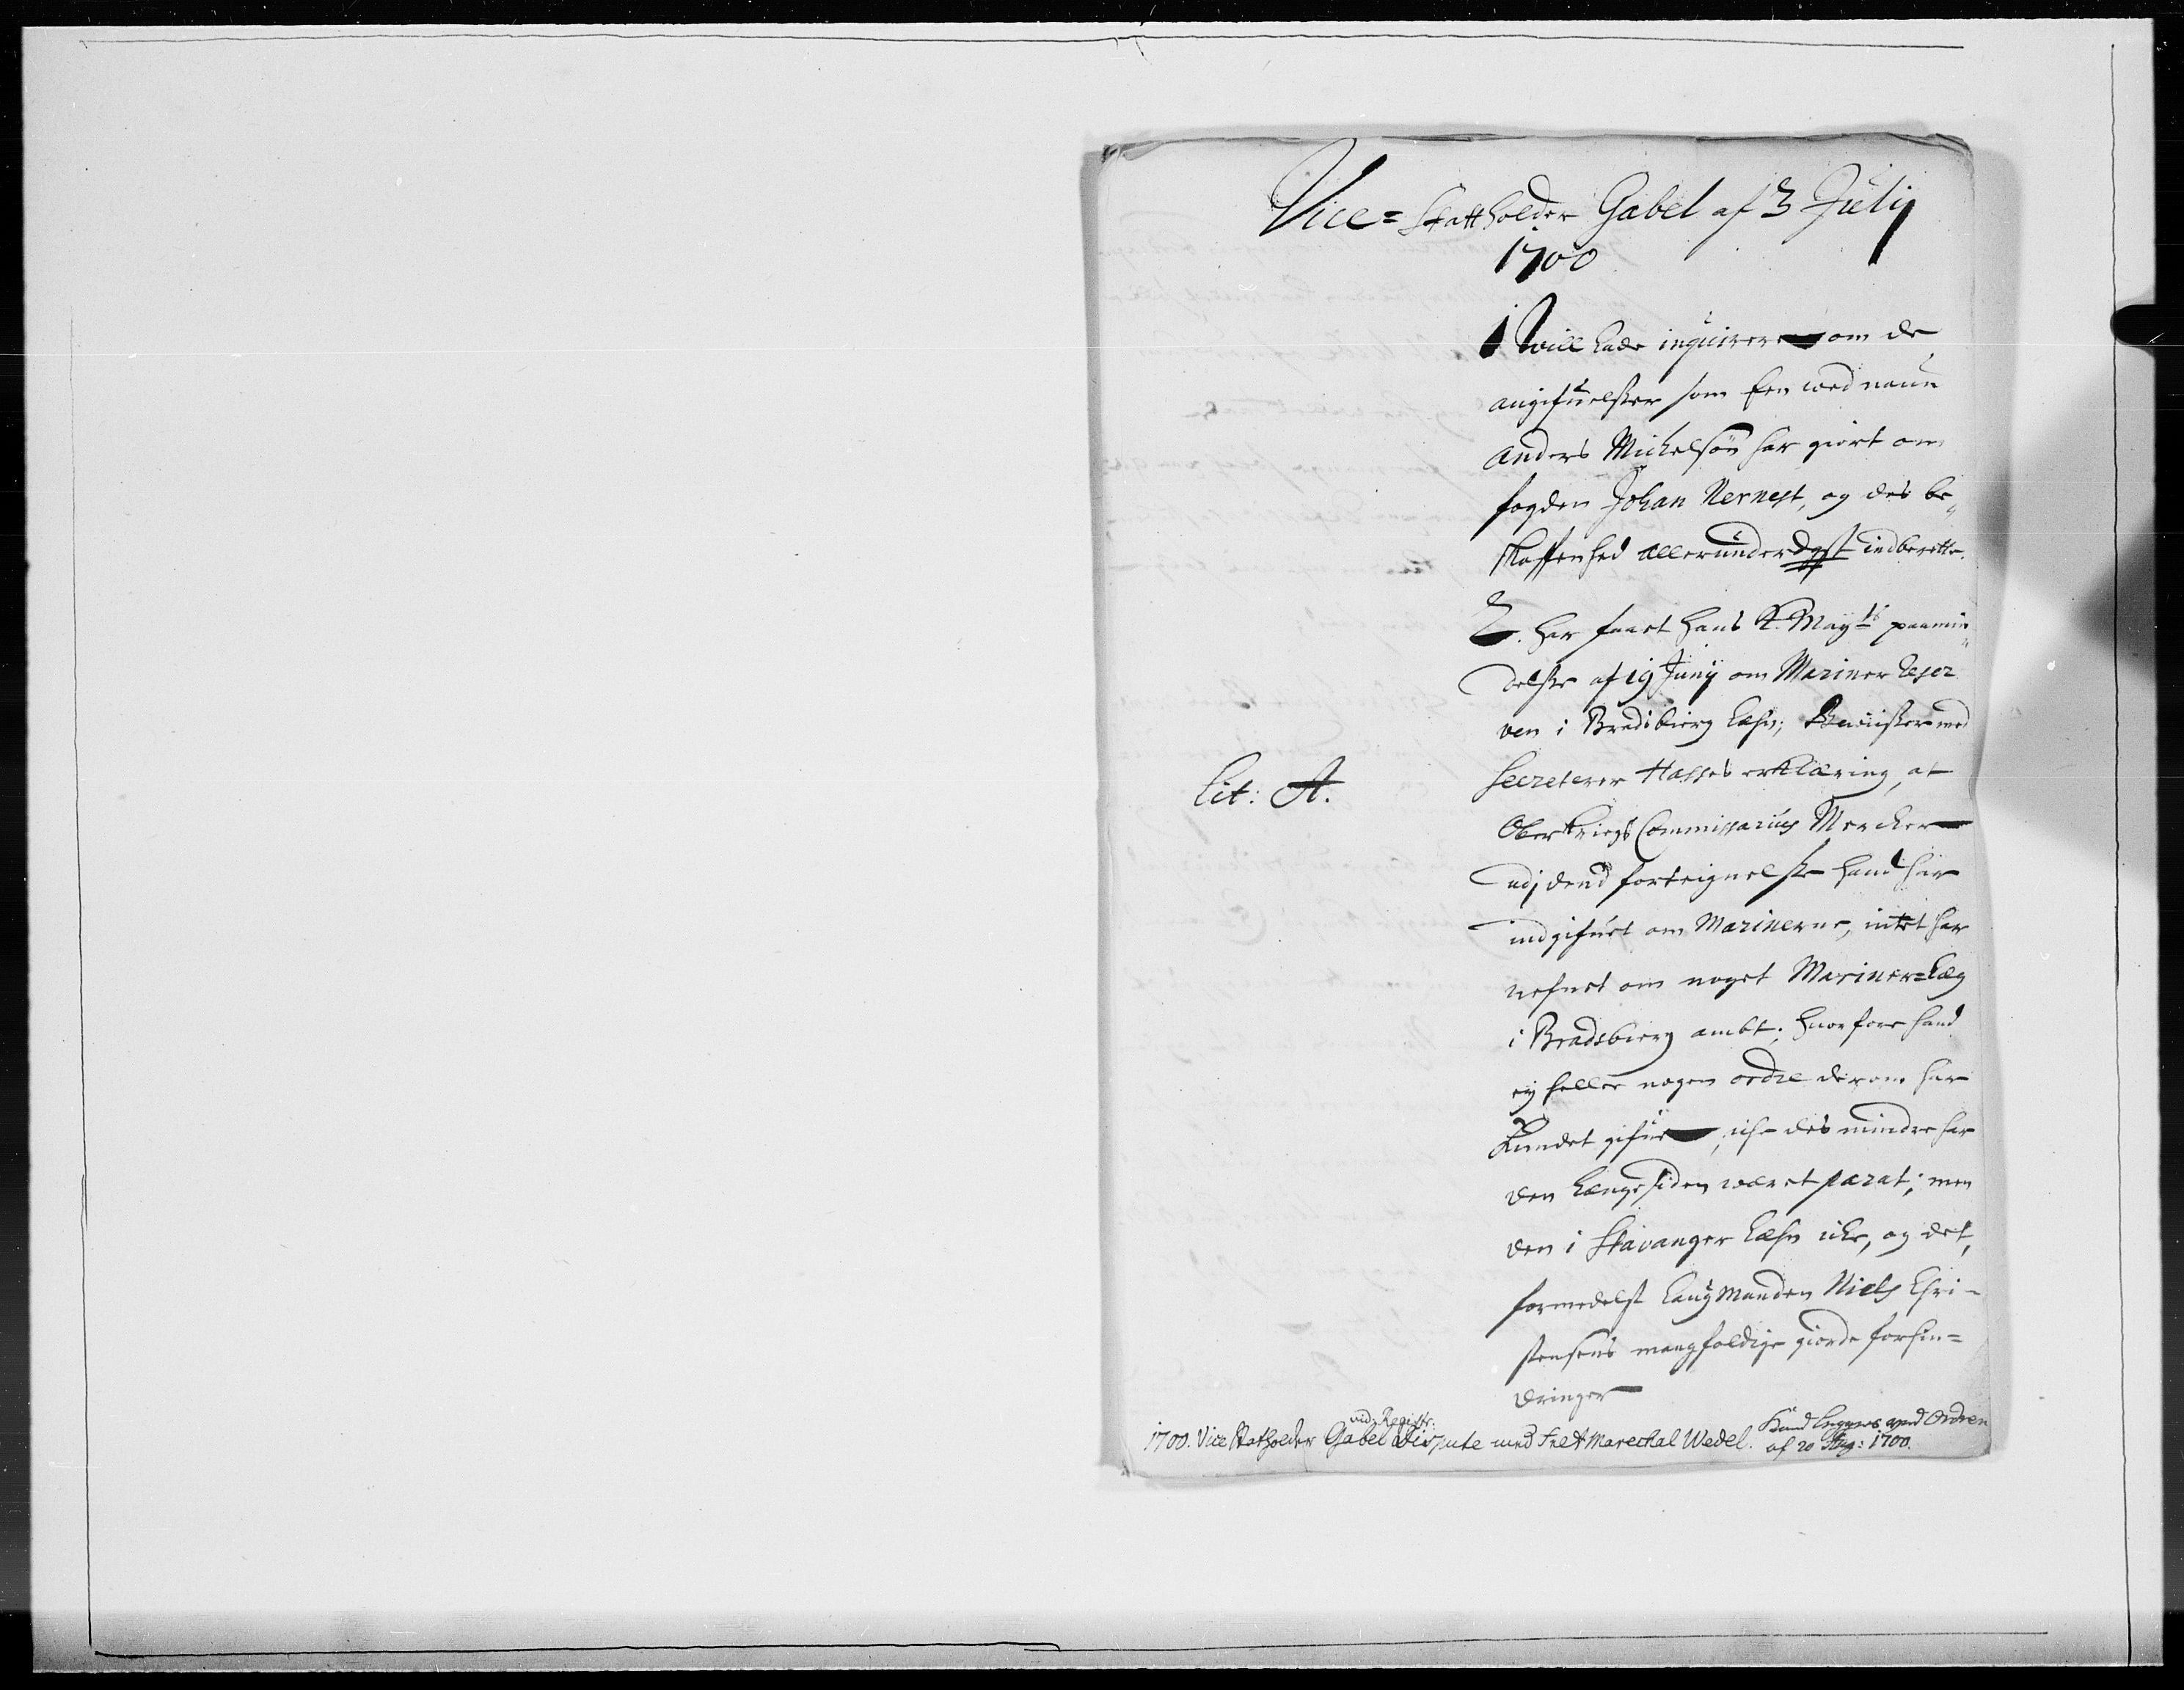 Vice=Statholder Gabel af 3 Julij
1700
1 Will lade inquirere om de
angifuelser som een wed naun
Anders Michelsøn har giort om
fogden Johan Nernest, og des be„
skaffenhed allerunderdgst indberette.
2. har faaet hans K. Mayts paamin„
delse af 19 Junij om Mariner Reser
ven i Bradsbierg Læhn; Beviiser med
Lit: A.
Secreterer Hasses erklæring, at
Oberkriegs Commissarius Mercker
udj dend forteignelse hand har
indgifuet om Marinerne, intet har
nefnet om noget Mariner=Læg
i Bradsbierg ambt; huorfore hand
ej heller nogen ordre derom har
kundet gifue, iche des mindre har
den længe siden wæret parat; men
den i Stavanger Læhn iche, og det,
formedelst Laugmanden Niels Chri-
stensens mangfoldige giorde forhin=
dringer
vid. Registr.
1700. Vice Statholder Gabel Dispute med Felt Marechal Wedel.
ved Ordren
af 20 Aug: 1700.